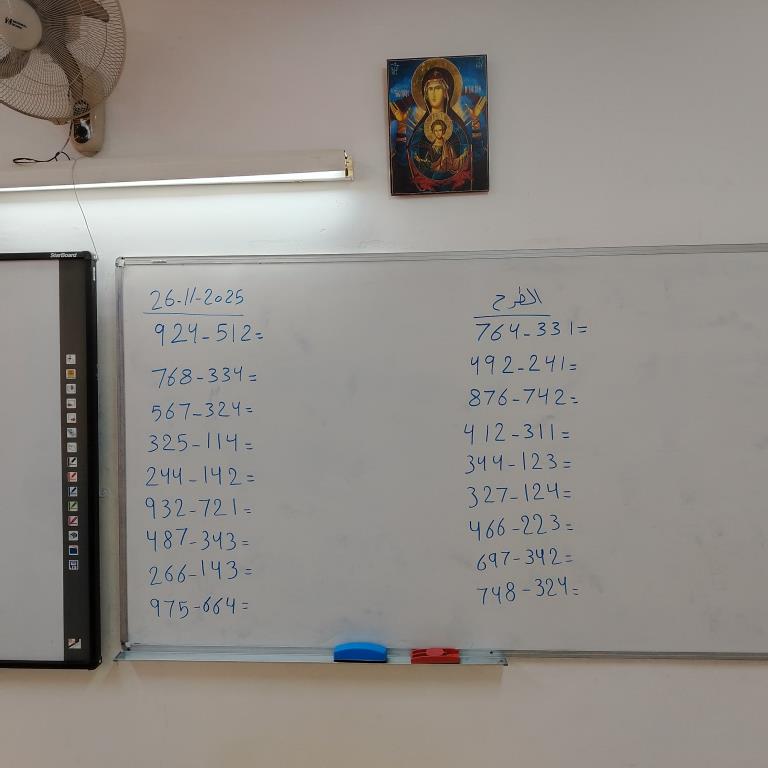 StarBoard
الطرح
764-331=
492-241=
876-742=
412-311=
344-123=
327-124=
466-223=
697-342=
748-324=
26-11-2025
924-512=
768-334=
567-324=
325-114=
244-142=
932-721=
487-343=
266-143=
975-664=